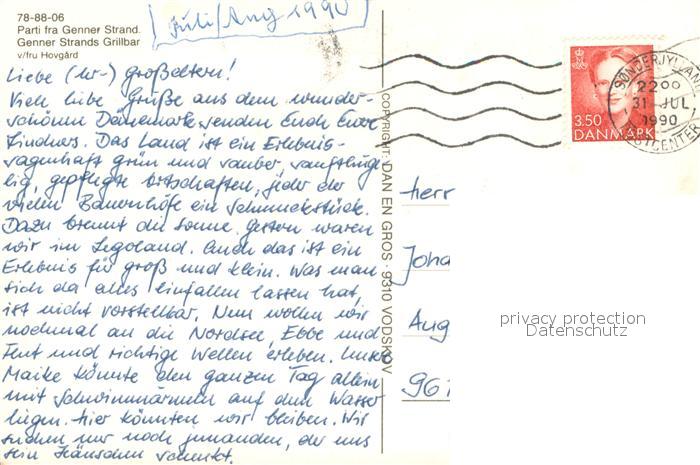 78-88-06
Parti fra Genner Strand.
Genner Strands Grillbar
v/fru Hovgård
Juli/Aug 1990
Liebe (Ur-) Großeltern!
Viele liebe Grüße aus dem wunder-
schönen Dänemark senden Euch Eure
Lindners. Das Land ist ein Erlebnis-
sagenhaft grün und sauber, sanfthüge-
lig, gepflegte Ortschaften, jeder der
vielen Bauernhöfe ein Schmuckstück.
Dazu brennt die Sonne. Gestern waren
wir im Legoland. Auch das ist ein
Erlebnis für groß und klein. Was man
sich da alles einfallen lassen hat,
ist nicht vorstellbar. Nun wollen wir
nochmal an die Nordsee, Ebbe und
Flut und richtige Wellen erleben. Unsere
Maike könnte den ganzen Tag allein
mit Schwimmärmeln auf dem Wasser
liegen. Hier könnten wir bleiben. Wir
suchen nur noch jemanden, der uns
sein Häuschen schenkt.
COPYRIGHT: DAN EN GROS · 9310 VODSKOV
3.50
DANMARK
SØNDERJYLLAND
2200
31 JUL
1990
POSTCENTER
Herr
Joha
Aug
961
privacy protection
Datenschutz